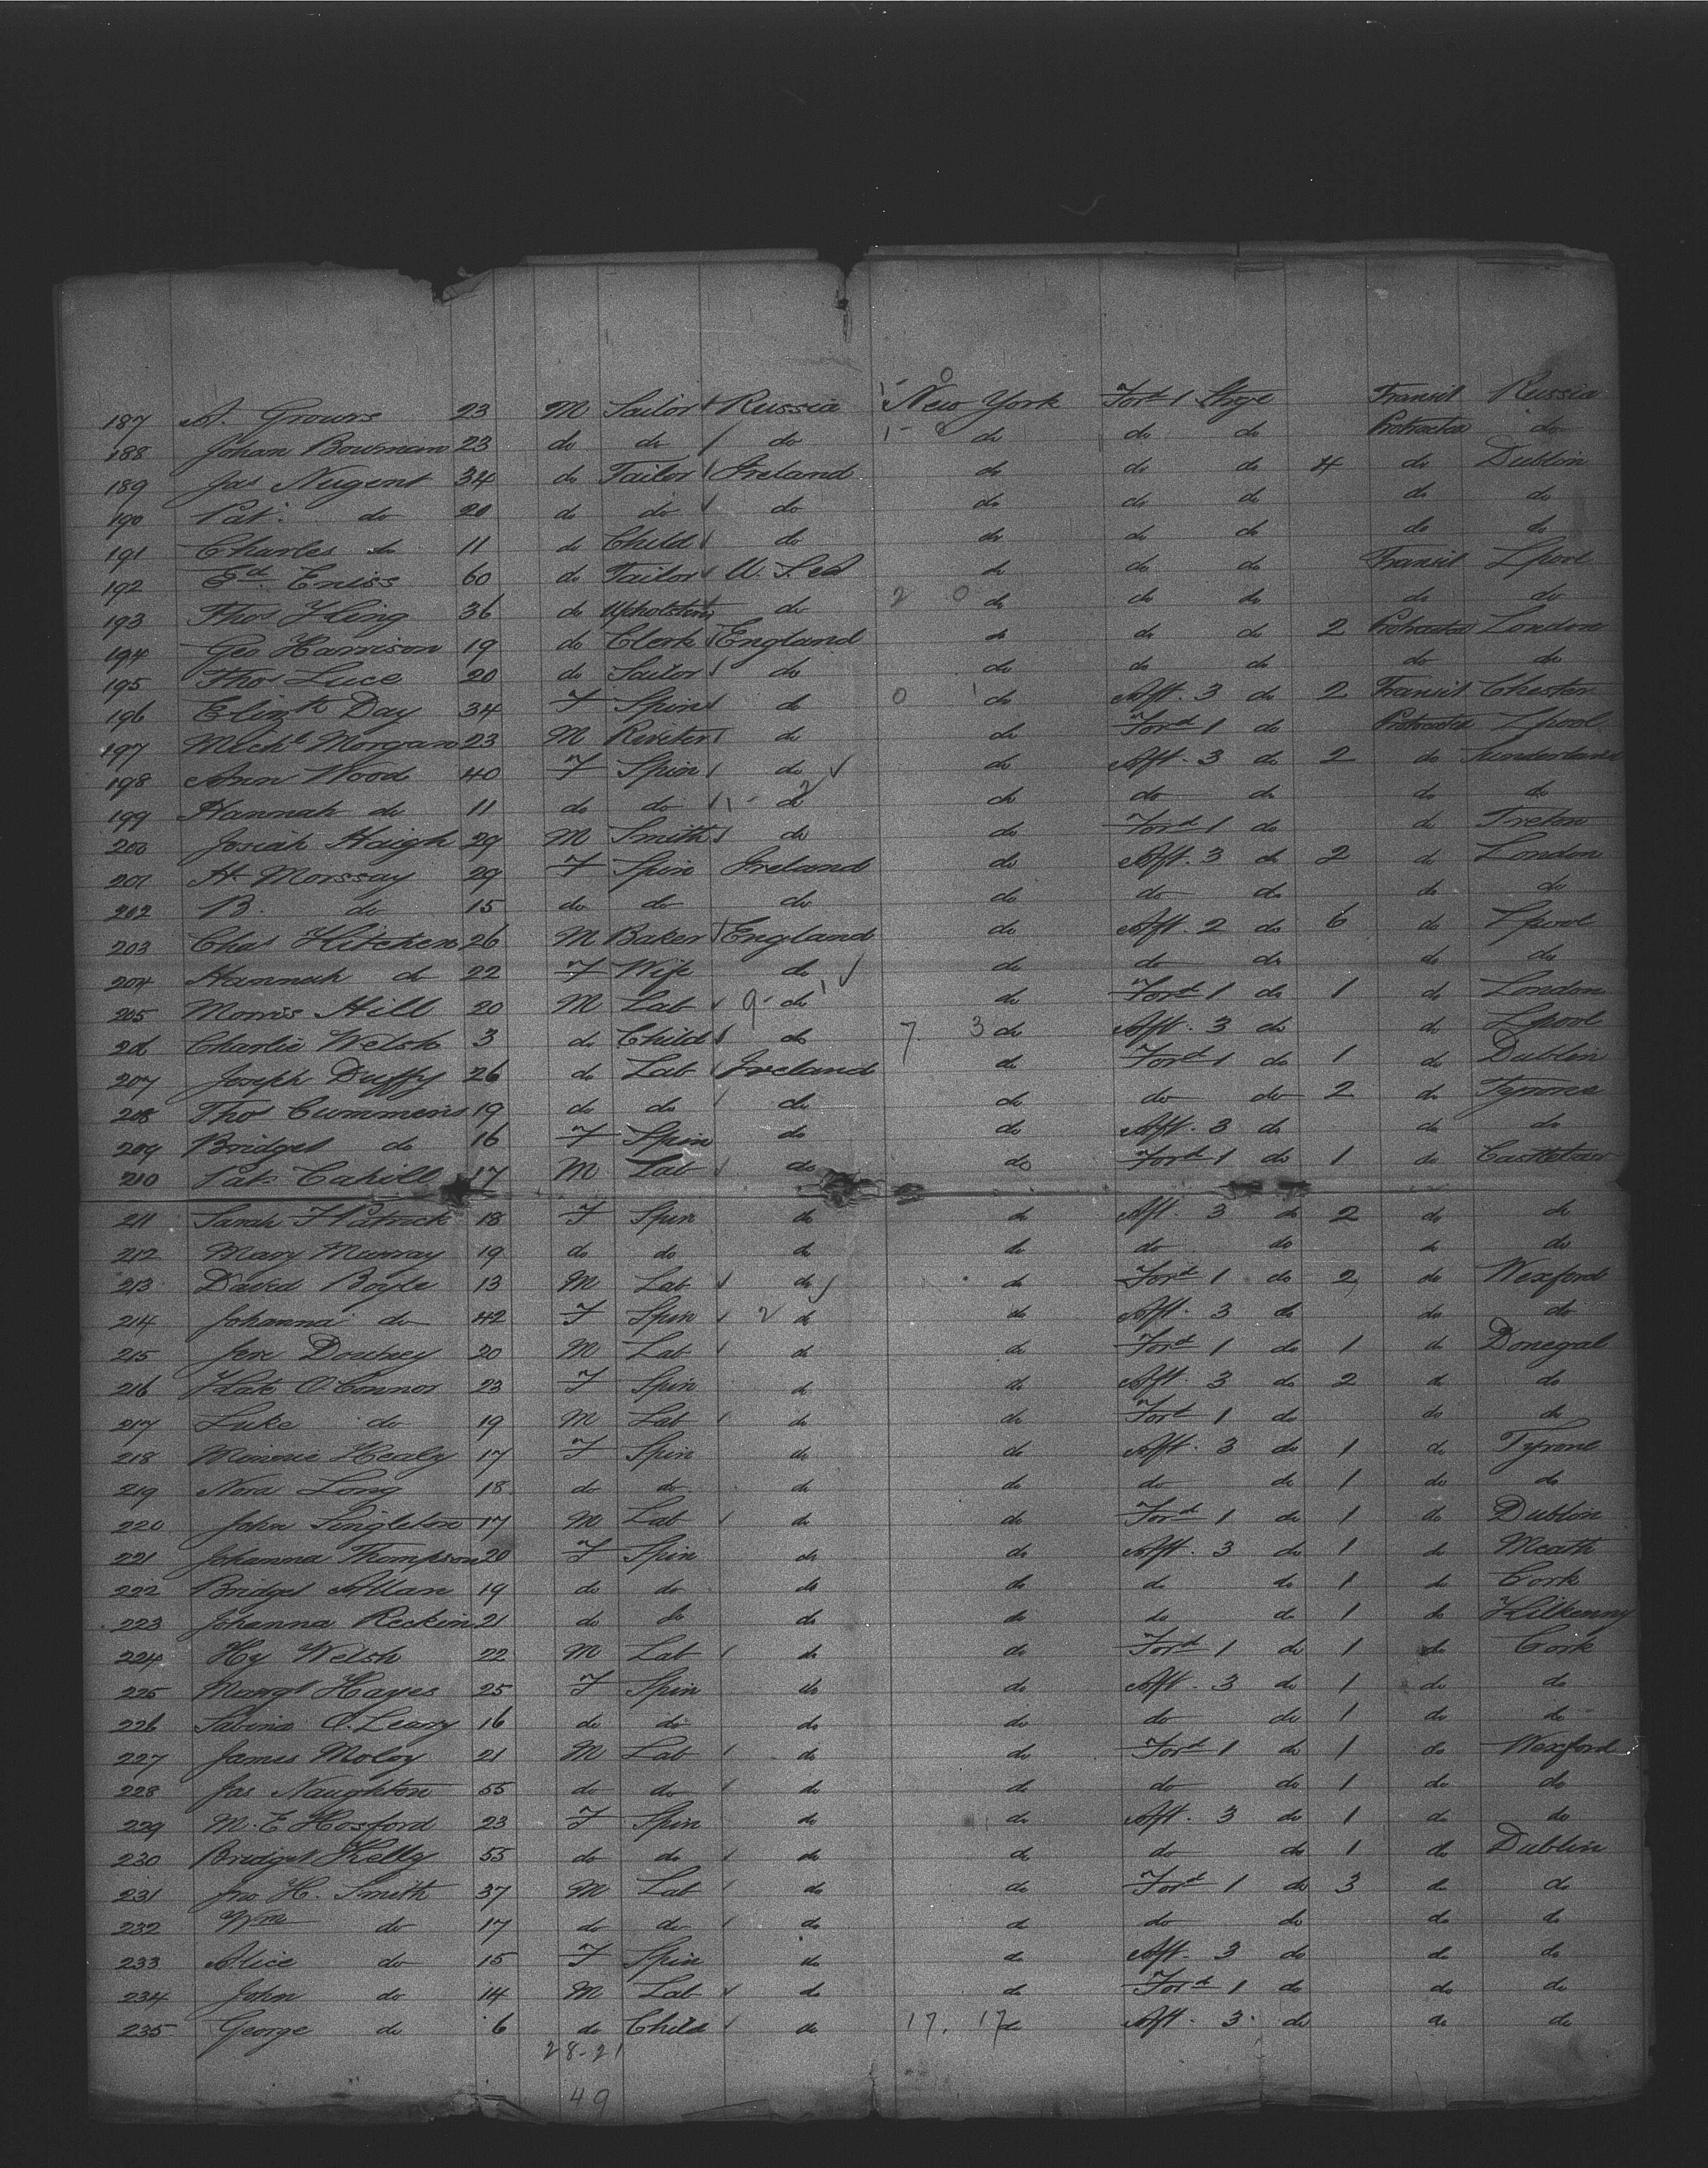 187 A. Growrs 23 M Sailor Russia New York Ford 1 Stge Transit Russia
188 Johan Bowman 23 do do do do do do Protracted do
189 Jas Nugent 34 do Tailor Ireland do do do 4 do Dublin
190 Pat. do 20 do do do do do do do do
191 Charles do 11 do Child do do do do do do
192 Ed Eniss 60 do Tailor U.S.A do do do Transit Lpool
193 Thos King 36 do Upholsterer do 2 0 do do do do do
194 Geo Harrison 19 do Clerk England do do do 2 Protracted London
195 Thos Luce 20 do Sailor do do do do do do
196 Elizth Day 34 F Spin do 0 1 do Aft. 3 do 2 Transit Chester
197 Michl Morgan 23 M Riveter do do Ford 1 do Protracted Lpool
198 Ann Wood 40 F Spin do do Aft. 3 do 2 do Sunderland
199 Hannah do 11 do do 1 - 2 do do do do do do
200 Josiah Haigh 29 M Smith do do Ford 1 do do
201 H Morssay 29 F Spin Ireland do Aft. 3 do 2 do London
202 B. do 15 do do do do do do do do
203 Chas Kitchen 26 M Baker England do Aft. 2 do 6 do Lpool
204 Hannah do 22 F Wife do do do do do do
205 Morris Hill 20 M Lab 9 - 1 do do Ford 1 do 1 do London
206 Charlie Welsh 3 do Child do 7. 3 do Aft. 3 do do Lpool
207 Joseph Duffy 26 do Lab Ireland do Ford 1 do 1 do Dublin
208 Thos Cummens 19 do do do do do do 2 do Tyrone
209 Bridget do 16 F Spin do do Aft. 3 do do do
210 Pat Cahill 17 M Lab do do Ford 1 do 1 do Castlebar
211 Sarah FPatrick 18 F Spin do do Aft. 3 do 2 do do
212 Mary Murray 19 do do do do do do do do
213 David Boyle 13 M Lab do do Ford 1 do 2 do Wexford
214 Johanna do 42 F Spin 2 do do Aft. 3 do do do
215 Jere 20 M Lab do do Ford 1 do 1 do Donegal
216 Kate O'Connor 23 F Spin do do Aft. 3 do 2 do do
217 Luke do 19 M Lab do do Ford 1 do do do
218 Minnie Healy 17 F Spin do do Aft. 3 do 1 do Tyrone
219 Nora Long 18 do do do do do do 1 do do
220 John Singleton 17 M Lab do do Ford 1 do 1 do Dublin
221 Johanna Thompson 20 F Spin do do Aft. 3 do 1 do Meath
222 Bridget Allan 19 do do do do do do 1 do Cork
223 Johanna Reckin 21 do do do do do do 1 do Kilkenny
224 Hy Welsh 22 M Lab do do Ford 1 do 1 do Cork
225 Margt Hayes 25 F Spin do do Aft. 3 do 1 do do
226 Sabina O.Leary 16 do do do do do do 1 do do
227 James Moloy 21 M Lab do do Ford 1 do 1 do Wexford
228 Jas Naughton 55 do do do do do do 1 do do
229 M.E Hosford 23 F Spin do do Aft. 3 do 1 do do
230 Bridget Kelly 55 do do do do do do 1 do Dublin
231 Jno H. Smith 37 M Lab do do Ford 1 do 3 do do
232 Wm do 17 do do do do do do do do
233 Alice do 15 F Spin do do Aft. 3 do do do
234 John do 14 M Lab do do Ford 1 do do do
235 George do 6 do Child do 17. 17 do Aft. 3. do do do
28-21
49